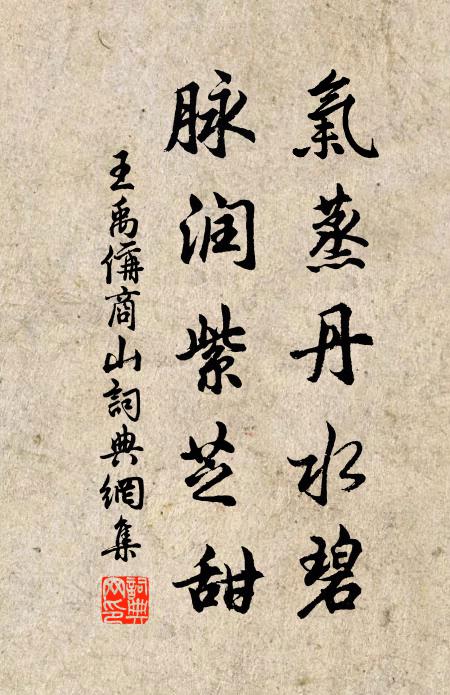 氣蒸丹水碧
脉润紫芝甜
王禹偁商山詞典網集
詞典网印